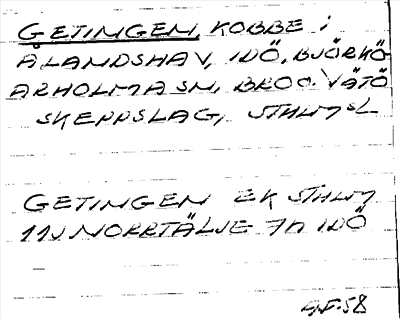 GETINGEN, KOBBE i
ÅLANDSHAV, IDÖ, BJÖRKÖ-
ARHOLMA SN, BRO O. VÄTÖ
SKEPPSLAG, STHLMSL
GETINGEN EK STHLM
11J NORRTÄLJE 7h IDÖ
58